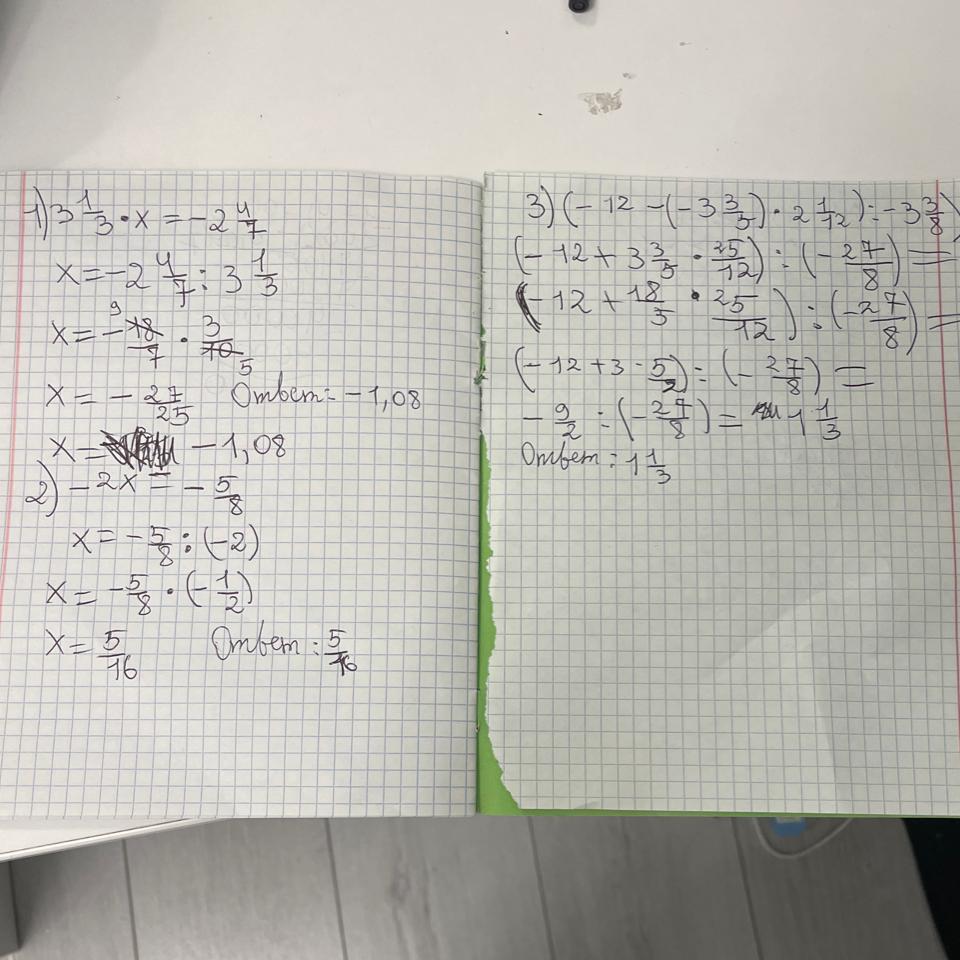 1) 3 1/3 · x = - 2 4/7
x = - 2 4/7 : 3 1/3
x = - 9 18/7 · 3/10 5
x = - 27/25 Ответ: - 1,08
x = - 1,08
2) - 2x = - 5/8
x = - 5/8 : (-2)
x = - 5/8 · (- 1/2)
x = 5/16 Ответ: 5/16
3) (- 12 - (- 3 3/5) · 2 1/12) : - 3 3/8)
(- 12 + 3 3/5 · 25/12) : (- 27/8) =
(- 12 + 18/5 · 25/12) : (- 27/8) =
(- 12 + 3 · 5/2) : (- 27/8) =
- 9/2 : (- 27/8) = 1 1/3
Ответ: 1 1/3